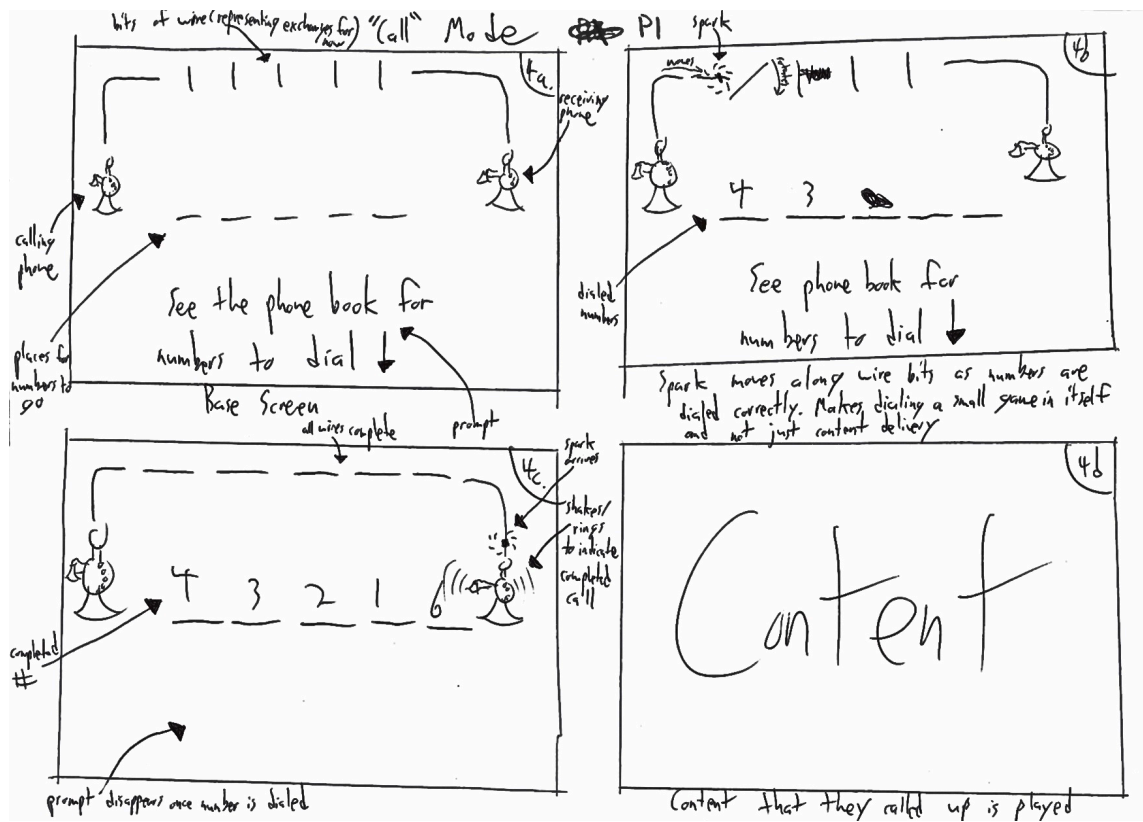 bits of wire (representing exchanges for now)
"Call" Mode P1
4a.
receiving phone
calling phone
places for numbers to go
See the phone book for
numbers to dial
Base Screen
prompt
spark
4b
moves
4 3
dialed numbers
See phone book for
numbers to dial
Spark moves along wire bits as numbers are
dialed correctly. Makes dialing a small game in itself
and not just content delivery
all wires complete
4c.
spark arrives
shakes/
rings
to indicate
completed
call
4 3 2 1 6
completed
#
prompt disappears once number is dialed
4d
Content
Content that they called up is played